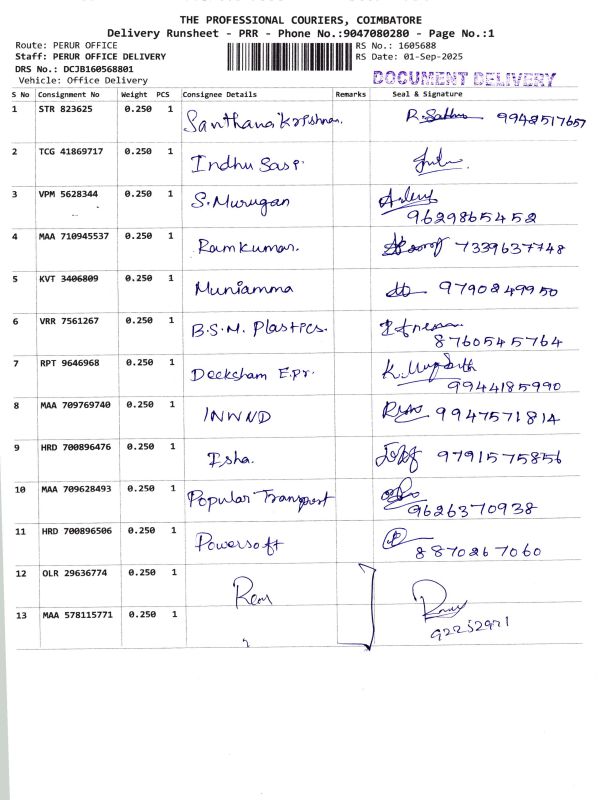 THE PROFESSIONAL COURIERS, COIMBATORE
Delivery Runsheet - PRR - Phone No.:9047080280 - Page No.:1
Route: PERUR OFFICE
RS No.: 1605688
Staff: PERUR OFFICE DELIVERY
RS Date: 01-Sep-2025
DRS No.: DCJB160568801
Vehicle: Office Delivery
DOCUMENT DELIVERY
S No Consignment No Weight PCS Consignee Details Remarks Seal & Signature
1 STR 823625 0.250 1 Santhana Krishnan. 9942517657
2 TCG 41869717 0.250 1 Indhu Sasi.
3 VPM 5628344 0.250 1 S.Murugan
9629865452
4 MAA 710945537 0.250 1 Ramkumar. 7339637748
5 KVT 3406809 0.250 1 Muniamma 9790849950
6 VRR 7561267 0.250 1 B.S.M. Plastics.
8760545764
7 RPT 9646968 0.250 1 Deeksham E.pr.
9944185990
8 MAA 709769740 0.250 1 INWND 9947571814
9 HRD 700896476 0.250 1 Isha. 9791575856
10 MAA 709628493 0.250 1 Popular Transport
9626370938
11 HRD 700896506 0.250 1 Powersoft
8870267060
12 OLR 29636774 0.250 1
13 MAA 578115771 0.250 1